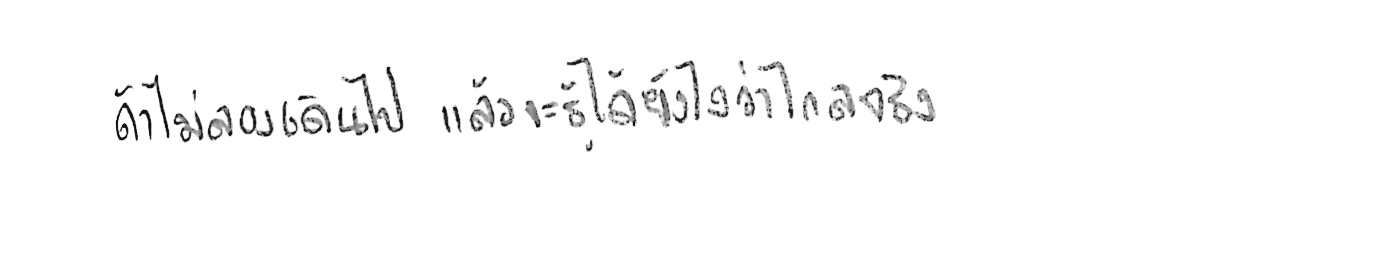 ถ้าไม่ลองเดินไป แล้วจะรู้ได้ยังไงว่าไกลจริง